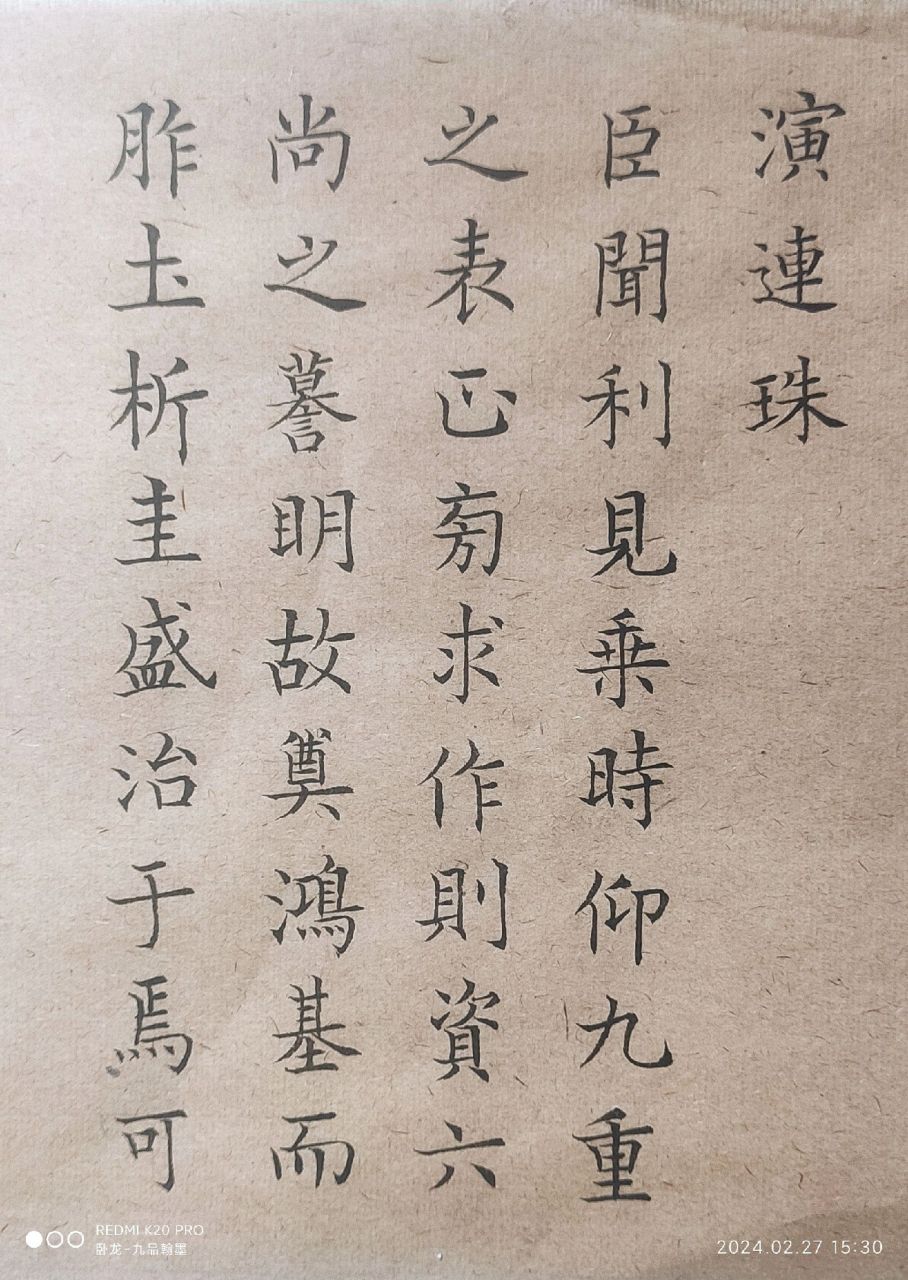 演連珠
臣聞利見乗時仰九重
之表正䓑求作則資六
尚之謩明故奠鴻基而
胙圡析圭盛治于焉可
REDMI K20 PRO
卧龙-九品翰墨
2024.02.27 15:30